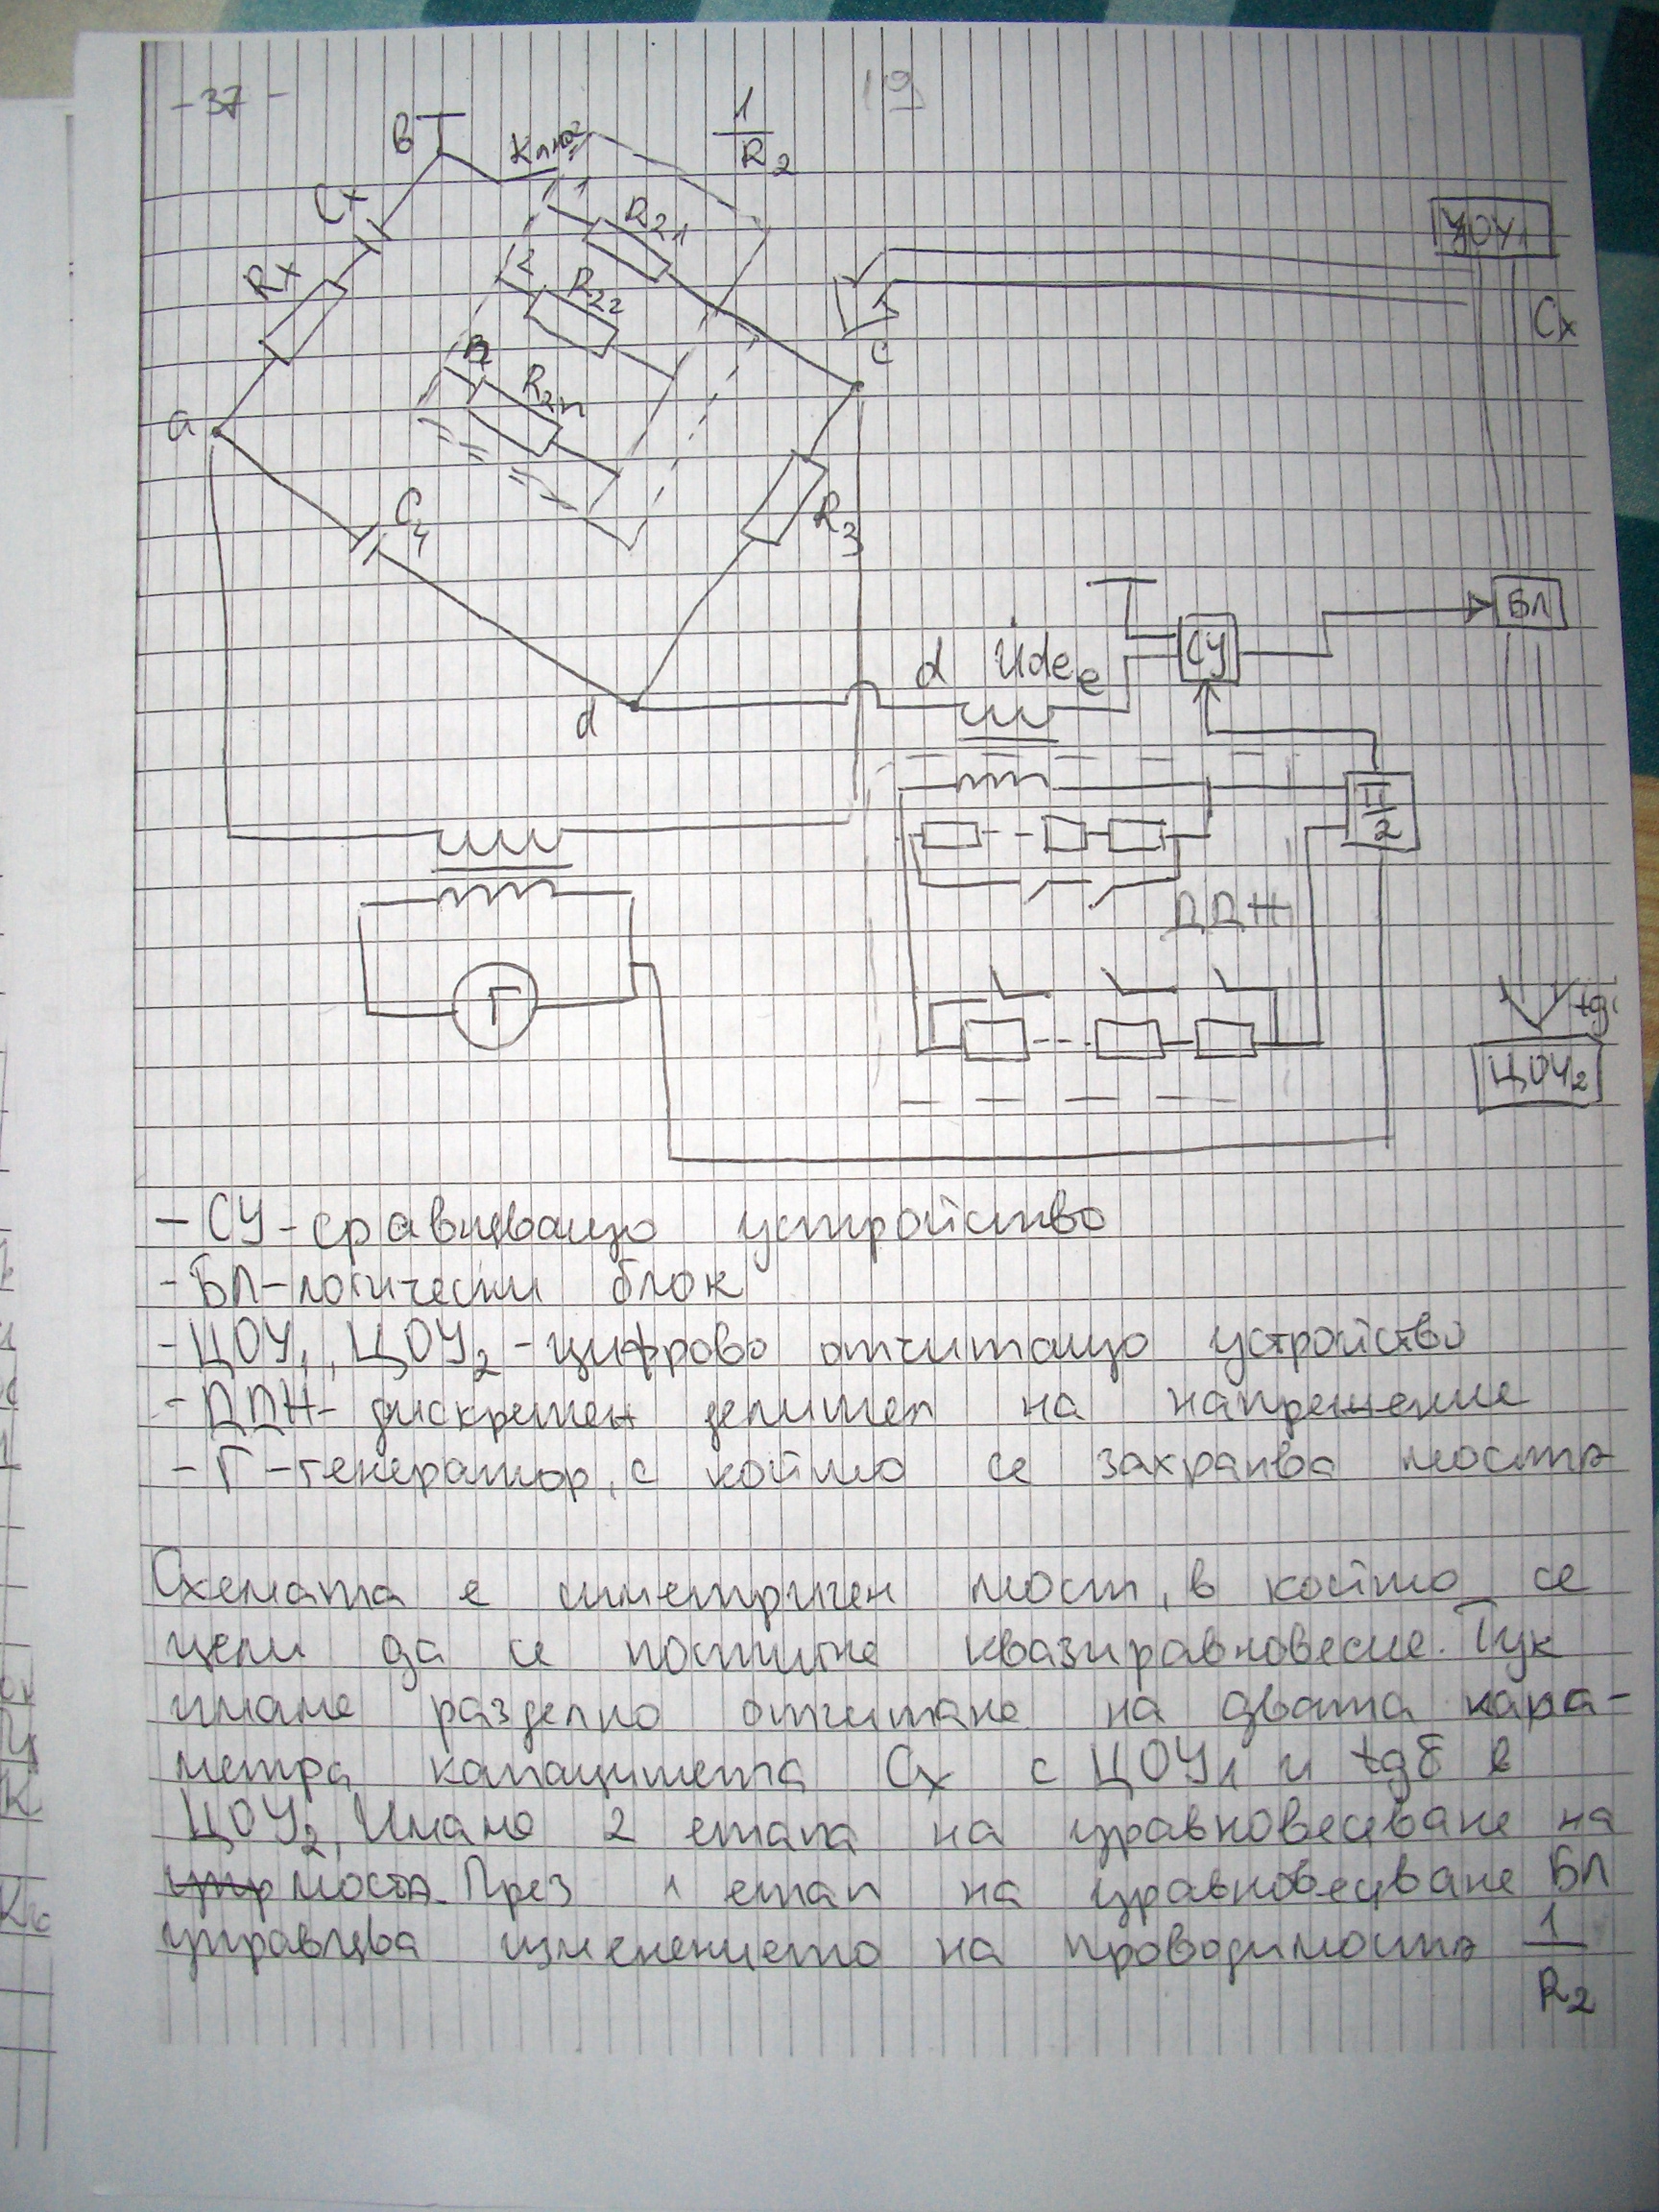 - 37 -
19
в
Ключ
1
R2
Cx
1
R21
ЦОУ1
Rx
2
R22
Cx
n
R2n
c
a
C4
R3
БЛ
СУ
d Úde e
d
π
2
ДДН
Г
tgδ
ЦОУ2
- СУ - сравняващо устройство
- БЛ - логически блок
- ЦОУ1, ЦОУ2 - цифрово отчитащо устройство
- ДДН - дискретен делител на напрежение
- Г - генератор, с който се захранва моста
Схемата е симетричен мост, в който се
цели да се постигне квазиравновесие. Тук
имаме разделно отчитане на двата пара-
метра капацитета Cx с ЦОУ1 и tgδ в
ЦОУ2. Имаме 2 етапа на уравновесяване на
моста. През 1 етап на уравновесяване БЛ
управлява изменението на проводимостта 1
R2